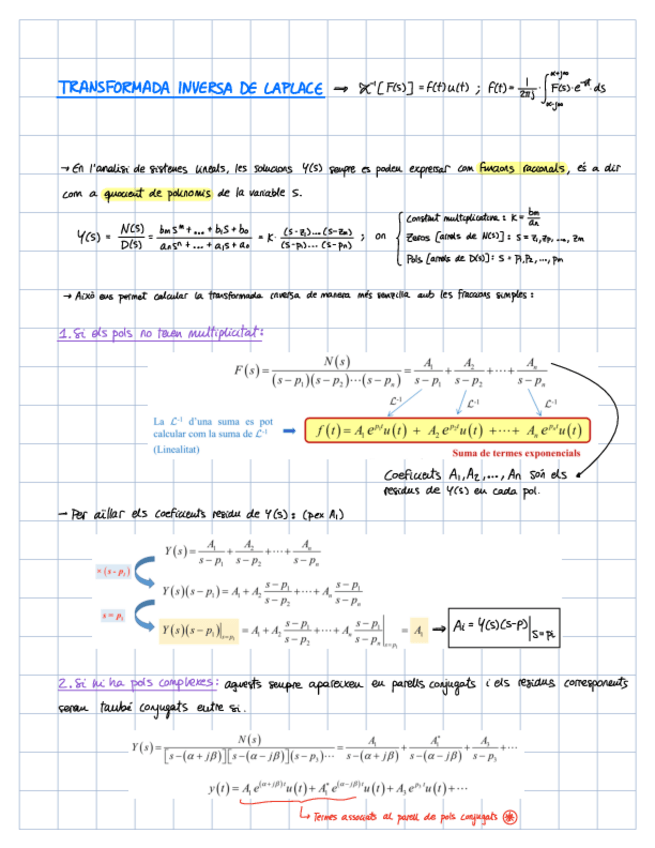 TRANSFORMADA INVERSA DE LAPLACE → ℒ⁻¹[F(s)] = f(t)u(t) ; f(t) = 1/2πj · ∫_{α-j∞}^{α+j∞} F(s)·e^{-st}·ds
→ En l'analisi de sistemes lineals, les solucions Y(s) sempre es poden expressar com funcions racionals, és a dir
com a quocient de polinomis de la variable s.
Y(s) = N(s)/D(s) = (bm s^m + ... + b1 s + b0)/(an s^n + ... + a1 s + a0) = K · (s-z1)...(s-zm)/(s-p1)...(s-pn) ; on
Constant multiplicativa : K = bm/an
Zeros [arrels de N(s)] : s = z1, z2, ..., zm
Pols [arrels de D(s)] : s = p1, p2, ..., pn
→ Això ens permet calcular la transformada inversa de manera més senzilla amb les fraccions simples :
1. Si els pols no tenen multiplicitat :
F(s) = N(s)/((s-p1)(s-p2)⋯(s-pn)) = A1/(s-p1) + A2/(s-p2) + ⋯ + An/(s-pn)
ℒ⁻¹ ℒ⁻¹ ℒ⁻¹
La ℒ⁻¹ d'una suma es pot
calcular com la suma de ℒ⁻¹
(Linealitat)
f(t) = A1 e^{p1t} u(t) + A2 e^{p2t} u(t) + ⋯ + An e^{pnt} u(t)
Suma de termes exponencials
Coeficients A1, A2, ..., An són els
residus de Y(s) en cada pol.
→ Per aïllar els coeficients residu de Y(s) : (pex A1)
Y(s) = A1/(s-p1) + A2/(s-p2) + ⋯ + An/(s-pn)
×(s-p1)
Y(s)(s-p1) = A1 + A2 (s-p1)/(s-p2) + ⋯ + An (s-p1)/(s-pn)
s=p1
Y(s)(s-p1)|_{s=p1} = A1 + A2 (s-p1)/(s-p2) + ⋯ + An (s-p1)/(s-pn)|_{s=p1} = A1 ⇒ Ai = Y(s)(s-p)|_{s=pi}
2. Si hi ha pols complexes : aquests sempre apareixen en parells conjugats i els residus corresponents
seran també conjugats entre si.
Y(s) = N(s)/([s-(α+jβ)][s-(α-jβ)](s-p3)⋯) = A1/(s-(α+jβ)) + A1*/(s-(α-jβ)) + A3/(s-p3) + ⋯
y(t) = A1 e^{(α+jβ)t} u(t) + A1* e^{(α-jβ)t} u(t) + A3 e^{p3t} u(t) + ⋯
↳ Termes associats al parell de pols conjugats ⊛